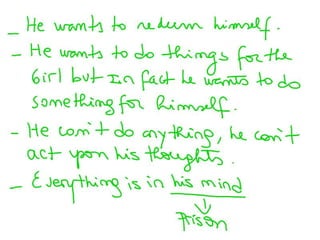 - He wants to redeem himself.
- He wants to do things for the
Girl but In fact he wants to do
something for himself.
- He can't do anything, he can't
act upon his thoughts.
- Everything is in his mind
↓
Prison